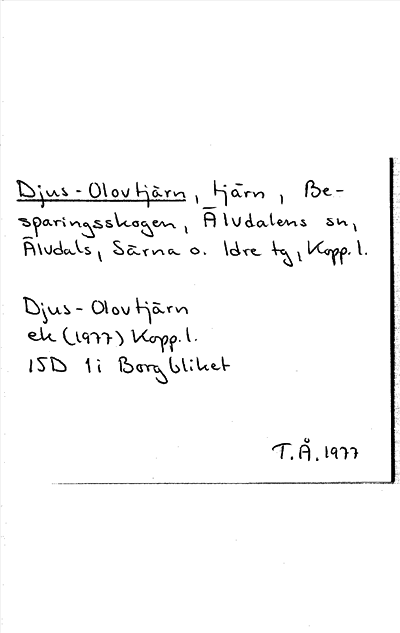 Djus-Olovtjärn, tjärn, Be-
sparingsskogen, Älvdalens sn,
Älvdals, Särna o. Idre tg, Kopp. l.
Djus-Olovtjärn
ek (1977) Kopp. l.
15D 1i Borgbliket
T.Å. 1977